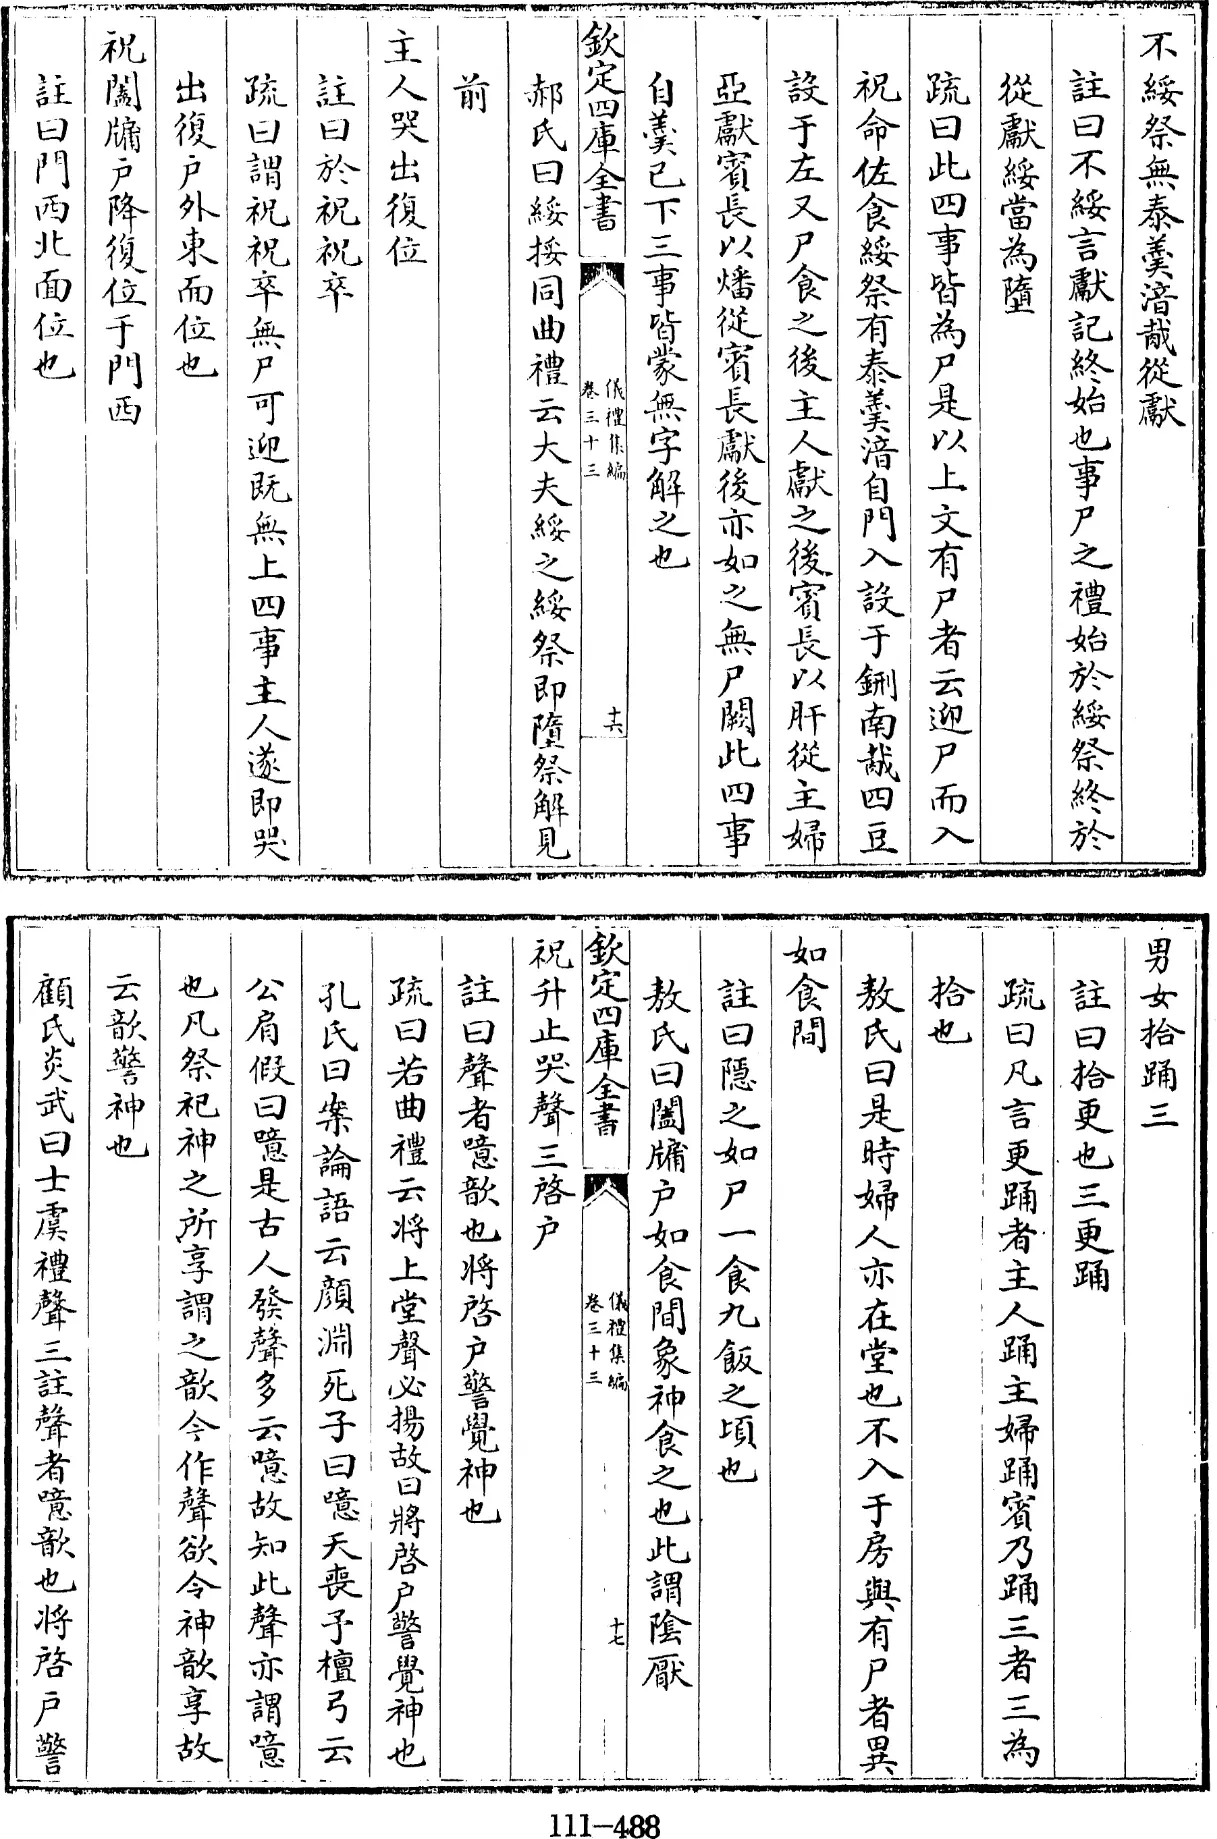 不綏祭無泰羹湆胾從獻
註曰不綏言獻記終始也事尸之禮始於綏祭終於
從獻綏當為墮
疏曰此四事皆為尸是以上文有尸者云迎尸而入
祝命佐食綏祭有泰羹湆自門入設于鉶南胾四豆
設于左又尸食之後主人獻之後賓長以肝從主婦
亞獻賓長以燔從賓長獻後亦如之無尸闕此四事
自羹已下三事皆蒙無字解之也
欽定四庫全書
儀禮集編
卷三十三
十六
郝氏曰綏挼同曲禮云大夫綏之綏祭即墮祭解見
前
主人哭出復位
註曰於祝祝卒
疏曰謂祝祝卒無尸可迎既無上四事主人遂即哭
出復戶外東面位也
祝闔牖戶降復位于門西
註曰門西北面位也
男女拾踊三
註曰拾更也三更踊
疏曰凡言更踊者主人踊主婦踊賓乃踊三者三為
拾也
敖氏曰是時婦人亦在堂也不入于房與有尸者異
如食間
註曰隱之如尸一食九飯之頃也
敖氏曰闔牖戶如食間象神食之也此謂陰厭
欽定四庫全書
儀禮集編
卷三十三
十七
祝升止哭聲三啓户
註曰聲者噫歆也將啓户警覺神也
疏曰若曲禮云將上堂聲必揚故曰將啓户警覺神也
孔氏曰案論語云顔淵死子曰噫天喪予檀弓云
公肩假曰噫是古人發聲多云噫故知此聲亦謂噫
也凡祭祀神之所享謂之歆今作聲欲令神歆享故
云歆警神也
顧氏炎武曰士虞禮聲三註聲者噫歆也將啓户警
111-488